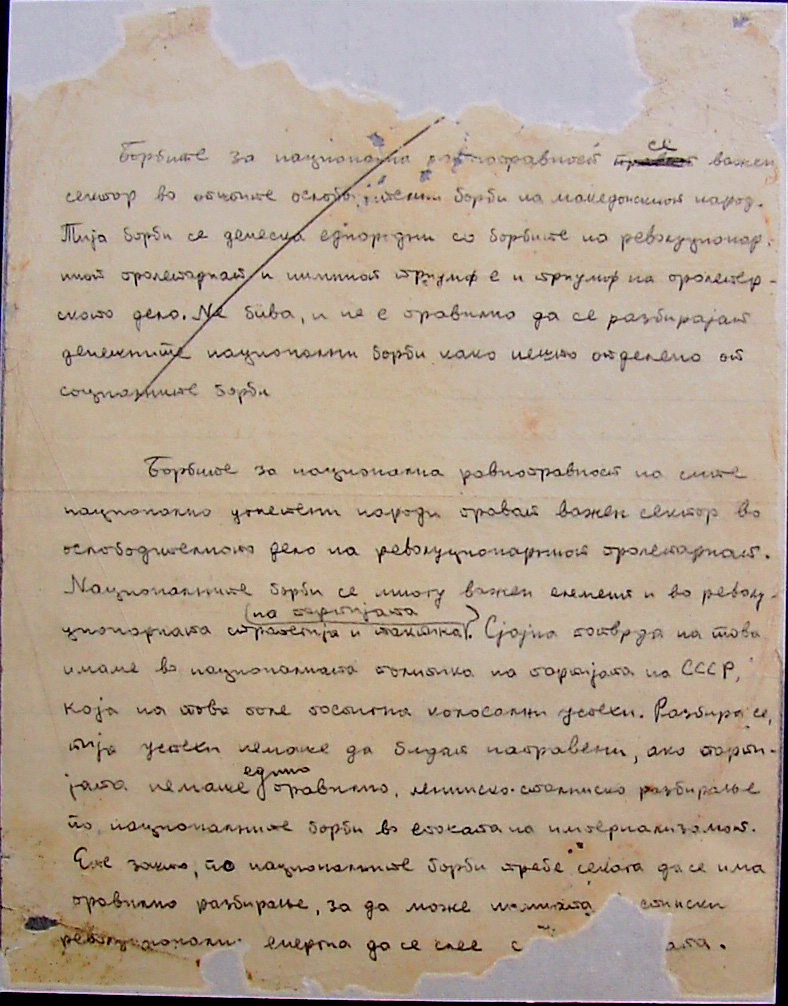 Борбите за национална рамноправност се важен
сектор во општите ослободителни борби на македонскиот народ.
Тија борби се денеска еднородни со борбите на революционар-
ниот пролетаријат и нивниот триумф е и триумф на пролетер-
ското дело. Не бива, и не е правилно да се разбирајат
денешните национални борби како нешто отделено от
социалните борби
Борбите за национална равноправност на сите
национално угнетени народи прават важен сектор во
ослободителното дело на революционарниот пролетариат.
Националните борби се многу важен елемент и во револу-
(на партијата)
ционарната стратегија и тактика. Сјајна потврда на това
имаме во националната политика на партијата на СССР,
која на това поле постигна колосални успехи. Разбира се,
тија успехи немаше да бидат направени, ако парти-
едно
јата немаше правилно, ленинско-сталинско разбирање
по националните борби во епохата на империализомот.
Ете зашто, по националните борби требе секога да се има
правилно разбирање, за да може нивната
револуционарна енергиа да се слее с ата.